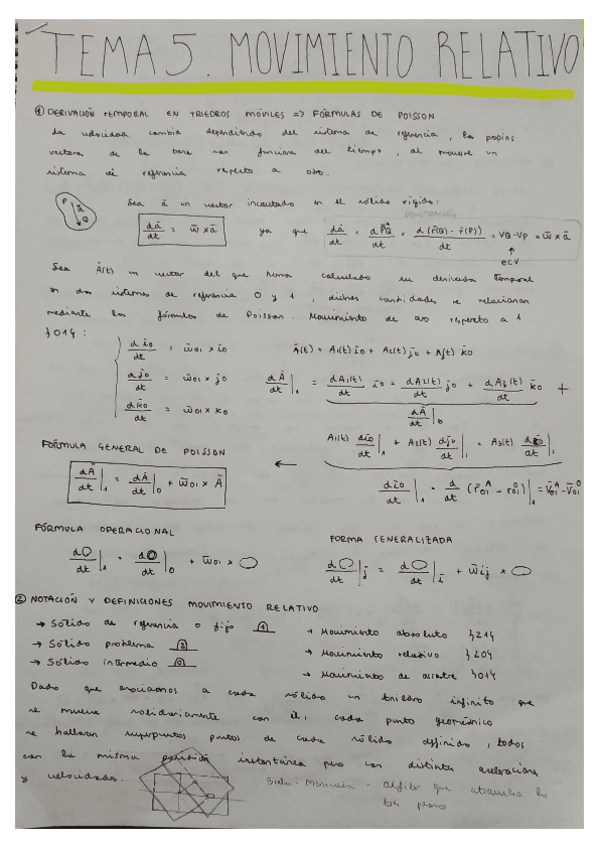 TEMA 5. MOVIMIENTO RELATIVO
① DERIVACIÓN TEMPORAL EN TRIEDROS MÓVILES => FÓRMULAS DE POISSON
La velocidad cambia dependiendo del sistema de referencia, los propios
vectores de la base son funciones del tiempo, al moverse un
sistema de referencia respecto a otro.
P ā Q
Sea ā un vector incrustado en el sólido rígido:
DEMOSTRACIÓN
dā/dt = w̄ × ā ya que dā/dt = d PQ/dt = d (r̄(Q) - r̄(P))/dt = VQ - VP = w̄ × ā
↑
ECV
Sea Ā(t) un vector del que hemos calculado su derivada temporal
en dos sistemas de referencia 0 y 1, dichas cantidades se relacionan
mediante las fórmulas de Poisson. Movimiento de 0 respecto a 1
{01}:
d ī0/dt = w̄01 × ī0 Ā(t) = A1(t) ī0 + A2(t) j̄0 + A3(t) k̄0
d j̄0/dt = w̄01 × j̄0 dĀ/dt|1 = dA1(t)/dt ī0 + dA2(t)/dt j̄0 + dA3(t)/dt k̄0 +
d k̄0/dt = w̄01 × k0 dĀ/dt|0
A1(t) dī0/dt|1 + A2(t) dj̄0/dt|1 + A3(t) dk̄0/dt|1
FÓRMULA GENERAL DE POISSON
dĀ/dt|1 = dĀ/dt|0 + w̄01 × Ā ←
dī0/dt|1 = d/dt (r̄01^A - r̄01^0)|1 = V̄01^A - V̄01^0
FÓRMULA OPERACIONAL FORMA GENERALIZADA
d◯/dt|1 = d◯/dt|0 + w̄01 × ◯ d◯/dt|j = d◯/dt|i + w̄ij × ◯
② NOTACIÓN Y DEFINICIONES MOVIMIENTO RELATIVO
→ Sólido de referencia o fijo ① → Movimiento absoluto {21}
→ Sólido problema ② → Movimiento relativo {20}
→ Sólido intermedio ⓪ → Movimiento de arrastre {01}
Dado que asociamos a cada sólido un triedro infinito que
se mueve solidariamente con él, cada punto geométrico
se hallaran superpuestos puntos de cada sólido definido, todos
con la misma posición instantánea pero con distintas aceleraciones
y velocidades.
- Alfiler que atraviesa los
tres planos